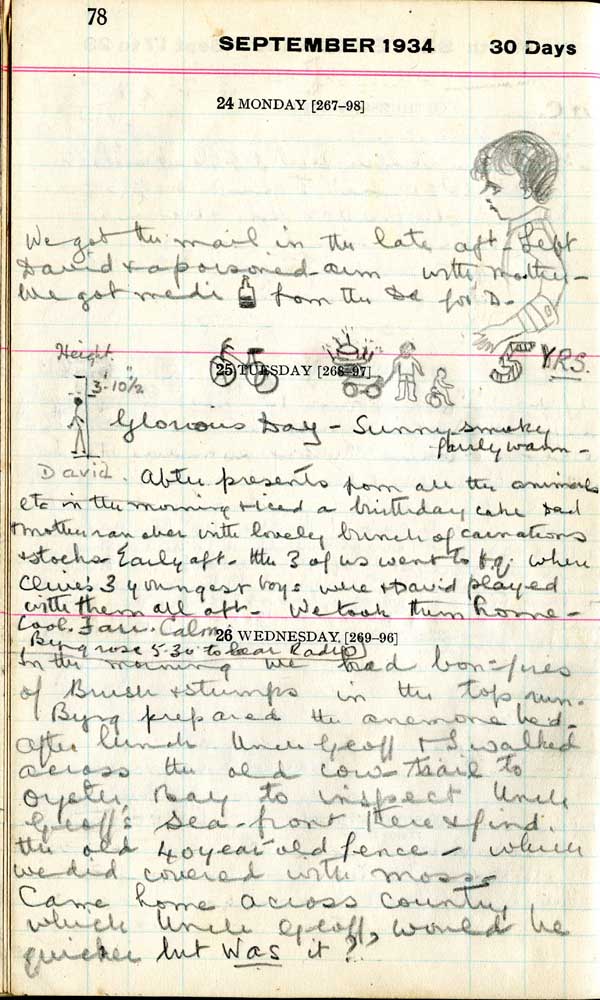 78
SEPTEMBER 1934 30 Days
24 MONDAY [267–98]
We got the mail in the late aft - Left
David & a poisoned arm with mother -
We got medi from the Dr for D -
5 YRS.
Height.
3' 10½"
25 TUESDAY [268–97]
Glorious Day - Sunny smoky
fairly warm -
David. After presents from all the animals
etc in the morning & iced a birthday cake Dad
& mother ran over with lovely bunch of carnations
& stocks Early aft - the 3 of us went to where
Clive's 3 youngest boys were & David played
with them all aft - We took them home -
Cool. Fair. Calm
26 WEDNESDAY. [269–96]
Byng rose 5-30 to hear Radio
In the morning we had bon=fires
of Brush & stumps in the top run.
Byng prepared the anemone bed -
after lunch Uncle Geoff & I walked
across the old cow trail to
Oyster Bay to inspect Uncle
Geoff's sea-front there & find.
the old 40 year old fence - which
we did covered with moss -
Came home across country
which Uncle Geoff, would be
quicker but Was it ?